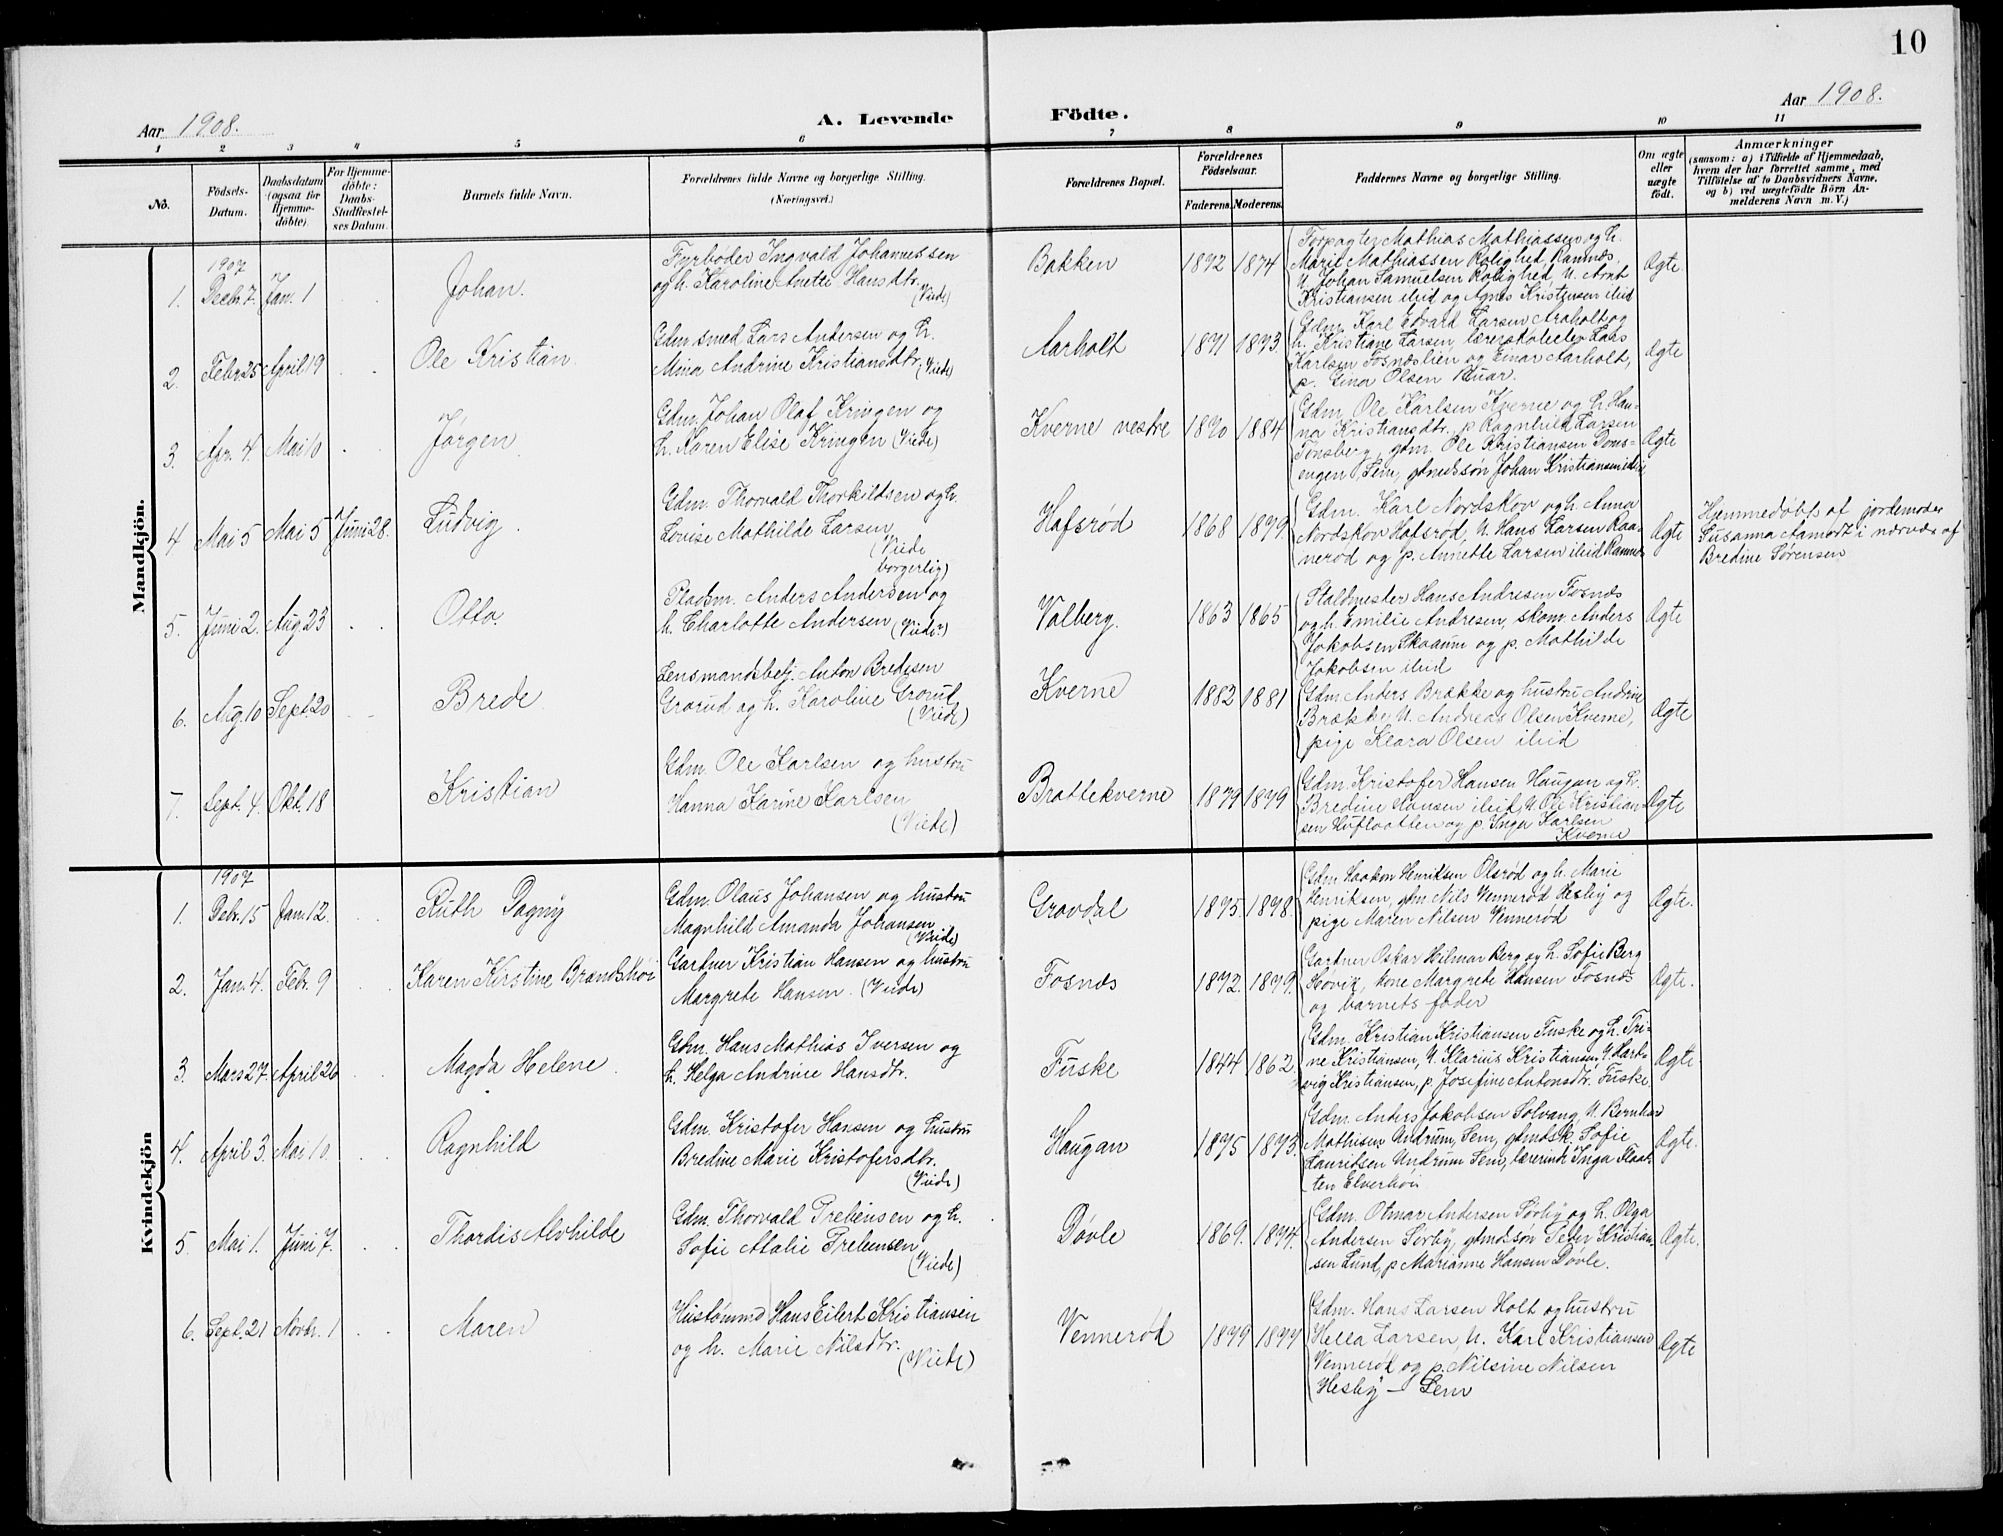 10
Aar 1908.
A. Levende
Födte.
Aar 1908.
1 2 3 4 5 6 7 8 9 10 11
No.
Födsels-
Datum.
Daabsdatum
(ogsaa for
Hjemme-
döbte).
For Hjemme-
döbte:
Daabs-
Stadfæstel-
ses Datum.
Barnets fulde Navn.
Forældrenes fulde Navne og borgerlige Stilling.
(Næringsvei.)
Forældrenes Bopæl.
Forældrenes
Födselsaar.
Faderens. Moderens.
Faddernes Navne og borgerlige Stilling.
Om ægte
eller
uægte
født.
Anmærkninger
(saasom: a) i Tilfælde af Hjemmedaab,
hvem der har forrettet samme, med
Tilföielse af to Daabsvidners Navne,
og b) ved uægtefödte Börn An-
melderens Navn m. V.)
Mandkjön.
1. 1907 Decbr. 7. Jan. 1
Johan.
Fyrbøder Ingvald Johannessen
og h. Karoline Anette Hansdtr.
(Viede)
Bakken
1872 1874
Forpagter Mathias Mathiassen og h.
Marie Mathiassen Rolighed, Ramnæs
U. Johan Samuelsen Rolighed, U. Arnt
Kristiansen ibid og Agnes Kristensen ibid
Ægte
2. Febr. 25 April 19
Ole Kristian.
Gdm. smed Lars Andersen og h.
Mina Andrine Kristiansdtr. (Viede)
Aarholt
1871 1873
Gdm. Karl Edvard Larsen Aarholt og
h. Kristiane Larsen, lærerskoleelev Lars
Karlsen Fosnæslien og Einar Aarholt,
p. Gina Olsen Ruar.
Ægte
3. Apr. 4. Mai 10
Jörgen
Gdm. Johan Olaf Kringen og
h. Karen Elise Kringen (Viede)
Kverne vestre
1870 1884
Gdm. Ole Karlsen Kverne og h. Han-
na Kristiansdtr., p. Ragnhild Larsen
Tönsberg, gdm. Ole Kristiansen Dons-
engen Sem, gmdssøn Johan Kristiansen ibid
Ægte
4 Mai 5 Mai 5 Juni 28.
Ludvig.
Gdm. Thorvald Thorkildsen og h.
Lovise Mathilde Larsen
(Viede
borgerlig)
Hafsrød
1868 1879.
Gdm. Karl Nordskov og h. Anna
Nordskov Hafsrød, U. Hans Larsen Raa-
nerød og p. Annette Larsen ibid Ramnes
Ægte
Hjemmedøbt af jordemoder
Susanna Aamort i nærvær af
Bredine Sørensen
5. Juni 2. Aug. 23
Otto.
Pladsm. Anders Andersen og
h. Charlotte Andersen (Viede)
Valberg.
1863 1865
Staldmester Hans Andresen Fosnæs
og h. Emilie Andresen, skom. Anders
Jakobsen Skaaum og p. Mathilde
Jakobsen ibid
Ægte
6. Aug. 10 Sept. 20
Brede
Lensmandsbetj. Anton Bredesen
Grorud og h. Karoline Grorud
(Viede)
Kverne
1882 1881
Gdm. Anders Brække og hustru Andrine
Brække, U. Andreas Olsen Kverne,
pige Klara Olsen ibid
Ægte
7. Sept. 4. Okt. 18
Kristian
Gdm. Ole Karlsen og hustru
Hanna Karine Karlsen
(Viede)
Brattekverne
1879 1879
Gdm. Kristofer Hansen Haugan og h.
Bredine Hansen ibid, U. Ole Kristian-
sen og p. Inga Karlsen
Kverne
Ægte
Kvindekjön
1. 1907 Debr. 15 Jan. 12.
Ruth Dagny
Gdm. Olaus Johansen og hustru
Magnhild Amanda Johansen
(Viede)
Gravdal
1875. 1878.
Gdm. Haakon Henriksen Olsrød og h. Marie
Henriksen, gdm. Nils Vennerød Hesby og
pige Maren Nilsen Vennerød
Ægte.
2. Jan. 4. Febr. 9
Karen Kirstine Brandshöi
Gartner Kristian Hansen og hustru
Margrete Hansen. (Viede)
Fosnæs
1872. 1879.
Gartner Oskar Hilmar Berg og h. Sofie Berg
kone Margrete Hansen Fosnæs
og barnets fader
Ægte.
3. Mars 27. April 26
Magda Helene.
Gdm. Hans Mathias Iversen og
h. Helga Andrine Hansdtr.
Fuske
1844 1862
Gdm. Kristian Kristiansen Fuske og h. Tri-
ne Kristiansen, U. Klarius Kristiansen, U. Hart-
vig Kristiansen, p. Josefine Antonsdtr. Fuske.
Ægte.
4. April 3. Mai 10.
Ragnhild
Gdm. Kristofer Hansen og hustru
Bredine Marie Kristofersdtr.
(Viede)
Haugan
1875 1873.
Gdm. Anders Jakobsen Solvang, U. Bernhard
Mathisen Undrum, Sem, gmdsk. Sofie
Lauritsen Undrum Sem, lærerinde Inga Flaat-
ten Elverhöi
Ægte.
5. Mai 1. Juni 7.
Thordis Alvhilde
Gdm. Thorvald Prebensen og h.
Sofie Atalie Prebensen
(Viede)
Døvle
1869. 1874.
Gdm. Otmar Andersen Sörby og h. Olga
Andersen Sörby, gmdssøn Peder Kristian-
sen Lund, p. Marianne Hansen Døvle.
Ægte.
6. Sept. 21 Novbr. 1
Maren
Hustømmd Hans Eilert Kristiansen
og h. Marie Nilsdtr.
(Viede)
Vennerød
1879 1877
Gdm. Hans Larsen Holt og hustru
Hella Larsen, U. Karl Kristiansen
Vennerød og p. Nilsine Nilsen
Hesby – Sem
Ægte